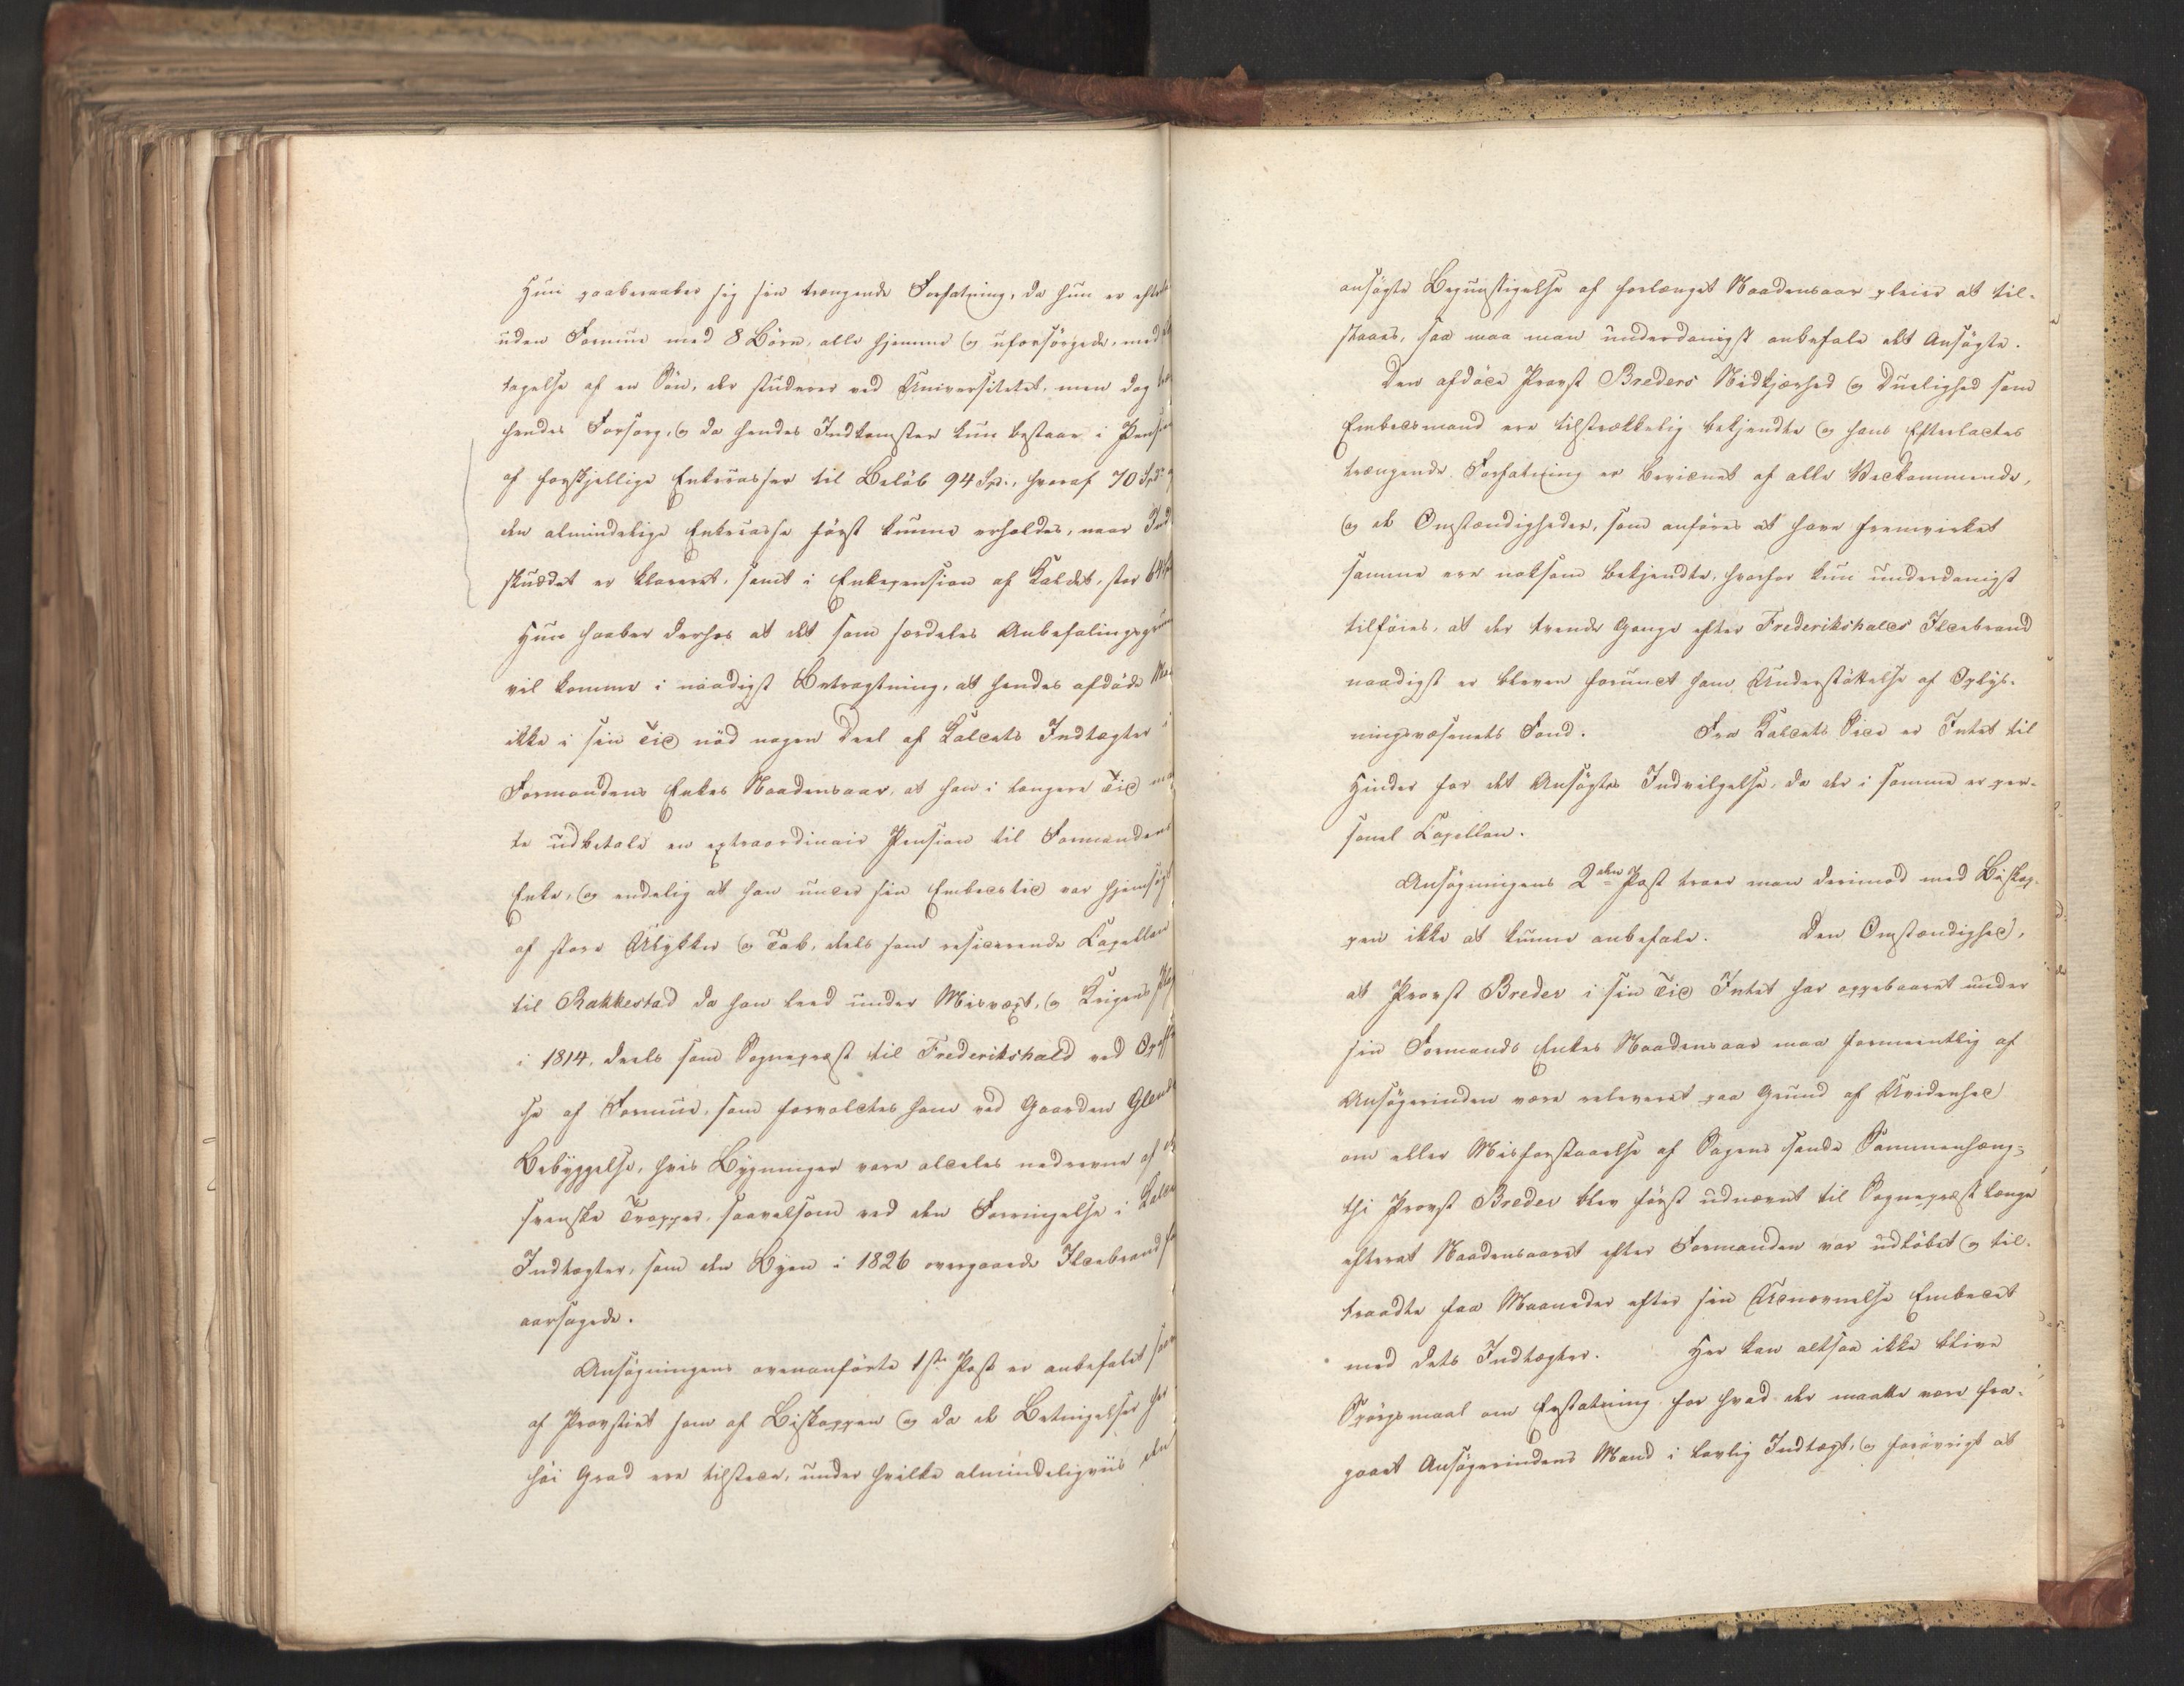 Hun paaberaaber sig sin trængende Forfatning, da hun er efterl
uden Formue med 8 Børn, alle hjemme og uforsørgede, med
tagelse af en Søn, der studerer ved Universitetet, men dog
hendes Forsorg, og da hendes Indkomster kun bestaae i Pension
af forskjellige Enkecasser til Beløb 94 Spd., hvoraf 70 Spd.
den almindelige Enkecasse først kunne erholdes, naar Ind
skuddet er klareret, samt i Enkepension af Kaldet, stor 64
Hun haaber derhos at det som særdeles Anbefalingsgrund
vil komme i naadigst Betragtning, at hendes afdøde
ikke i sin Tid nød nogen Deel af Kaldets Indtægter i
Formandens Enkes Naadensaar, at han i længere Tid maa
te udbetale en extraordinair Pension til Formandens
Enke, og endelig at han under sin Embedstid var hjemsøgt
af store Ulykker og Tab, dels som residerende Capellan
til Rakkestad da han leed under Misvæxt, og Krigens
i 1814, deels som Sognepræst til Frederikshald ved
se af Formue, som forvoldtes ham ved Gaarden
Bebyggelse, hvis Bygninger vare aldeles nedrevne af
svenske Tropper, saavelsom ved den Forringelse i
Indtægter, som den Byen i 1826 overgaaede Ildebrand
aarsagede.
Ansøgningens ovenanførte 1ste Post er anbefalet
af Provstiet som af Biskoppen og da de Betingelser
høi Grad ere tilstede, under hvilke almindeligviis den
ansøgte Begunstigelse af forlænget Naadensaar pleier at til-
staaes, saa maa man underdanigst anbefale det Ansøgte.
Den afdøde Provst Breders Nidkjærhed og Duelighed som
Embedsmand ere tilstrækkelig bekjendte og hans Efterladtes
trængende Forfatning er bevidnet af alle Vedkommende,
og de Omstændigheder, som anføres at have fremvirket
samme ere noksom bekjendte, hvorfor kun underdanigst
tilføies, at der trende Gange efter Frederikshalds Ildebrand
naadigst er bleven forundt ham Understøttelse af Oplys-
ningsvæsenets Fond. Fra Kaldets Side er Intet til
Hinder for det Ansøgtes Indvilgelse, da der i samme er per-
sonel Capellan.
Ansøgningens 2den Post troer man derimod med Biskop-
pen ikke at kunne anbefale. Den Omstændighed,
at Provst Breder i sin Tid Intet har oppebaaret under
sin Formands Enkes Naadensaar maa formeentlig af
Ansøgerinden være releveret paa Grund af Uvidenhed
om eller Misforstaaelse af Sagens sande Sammenhæng;
thi Provst Breder blev først udnævnt til Sognepræst længe
efterat Naadensaaret efter Formanden var udløbet og til-
traadte faa Maaneder efter sin Udnævnelse Embedet
med dets Indtægter. Her kan altsaa ikke blive
Spørgsmaal om Erstatning for hvad der maatte være fra-
gaaet Ansøgerindens Mand i lovlig Indtægt, og forøvrigt at